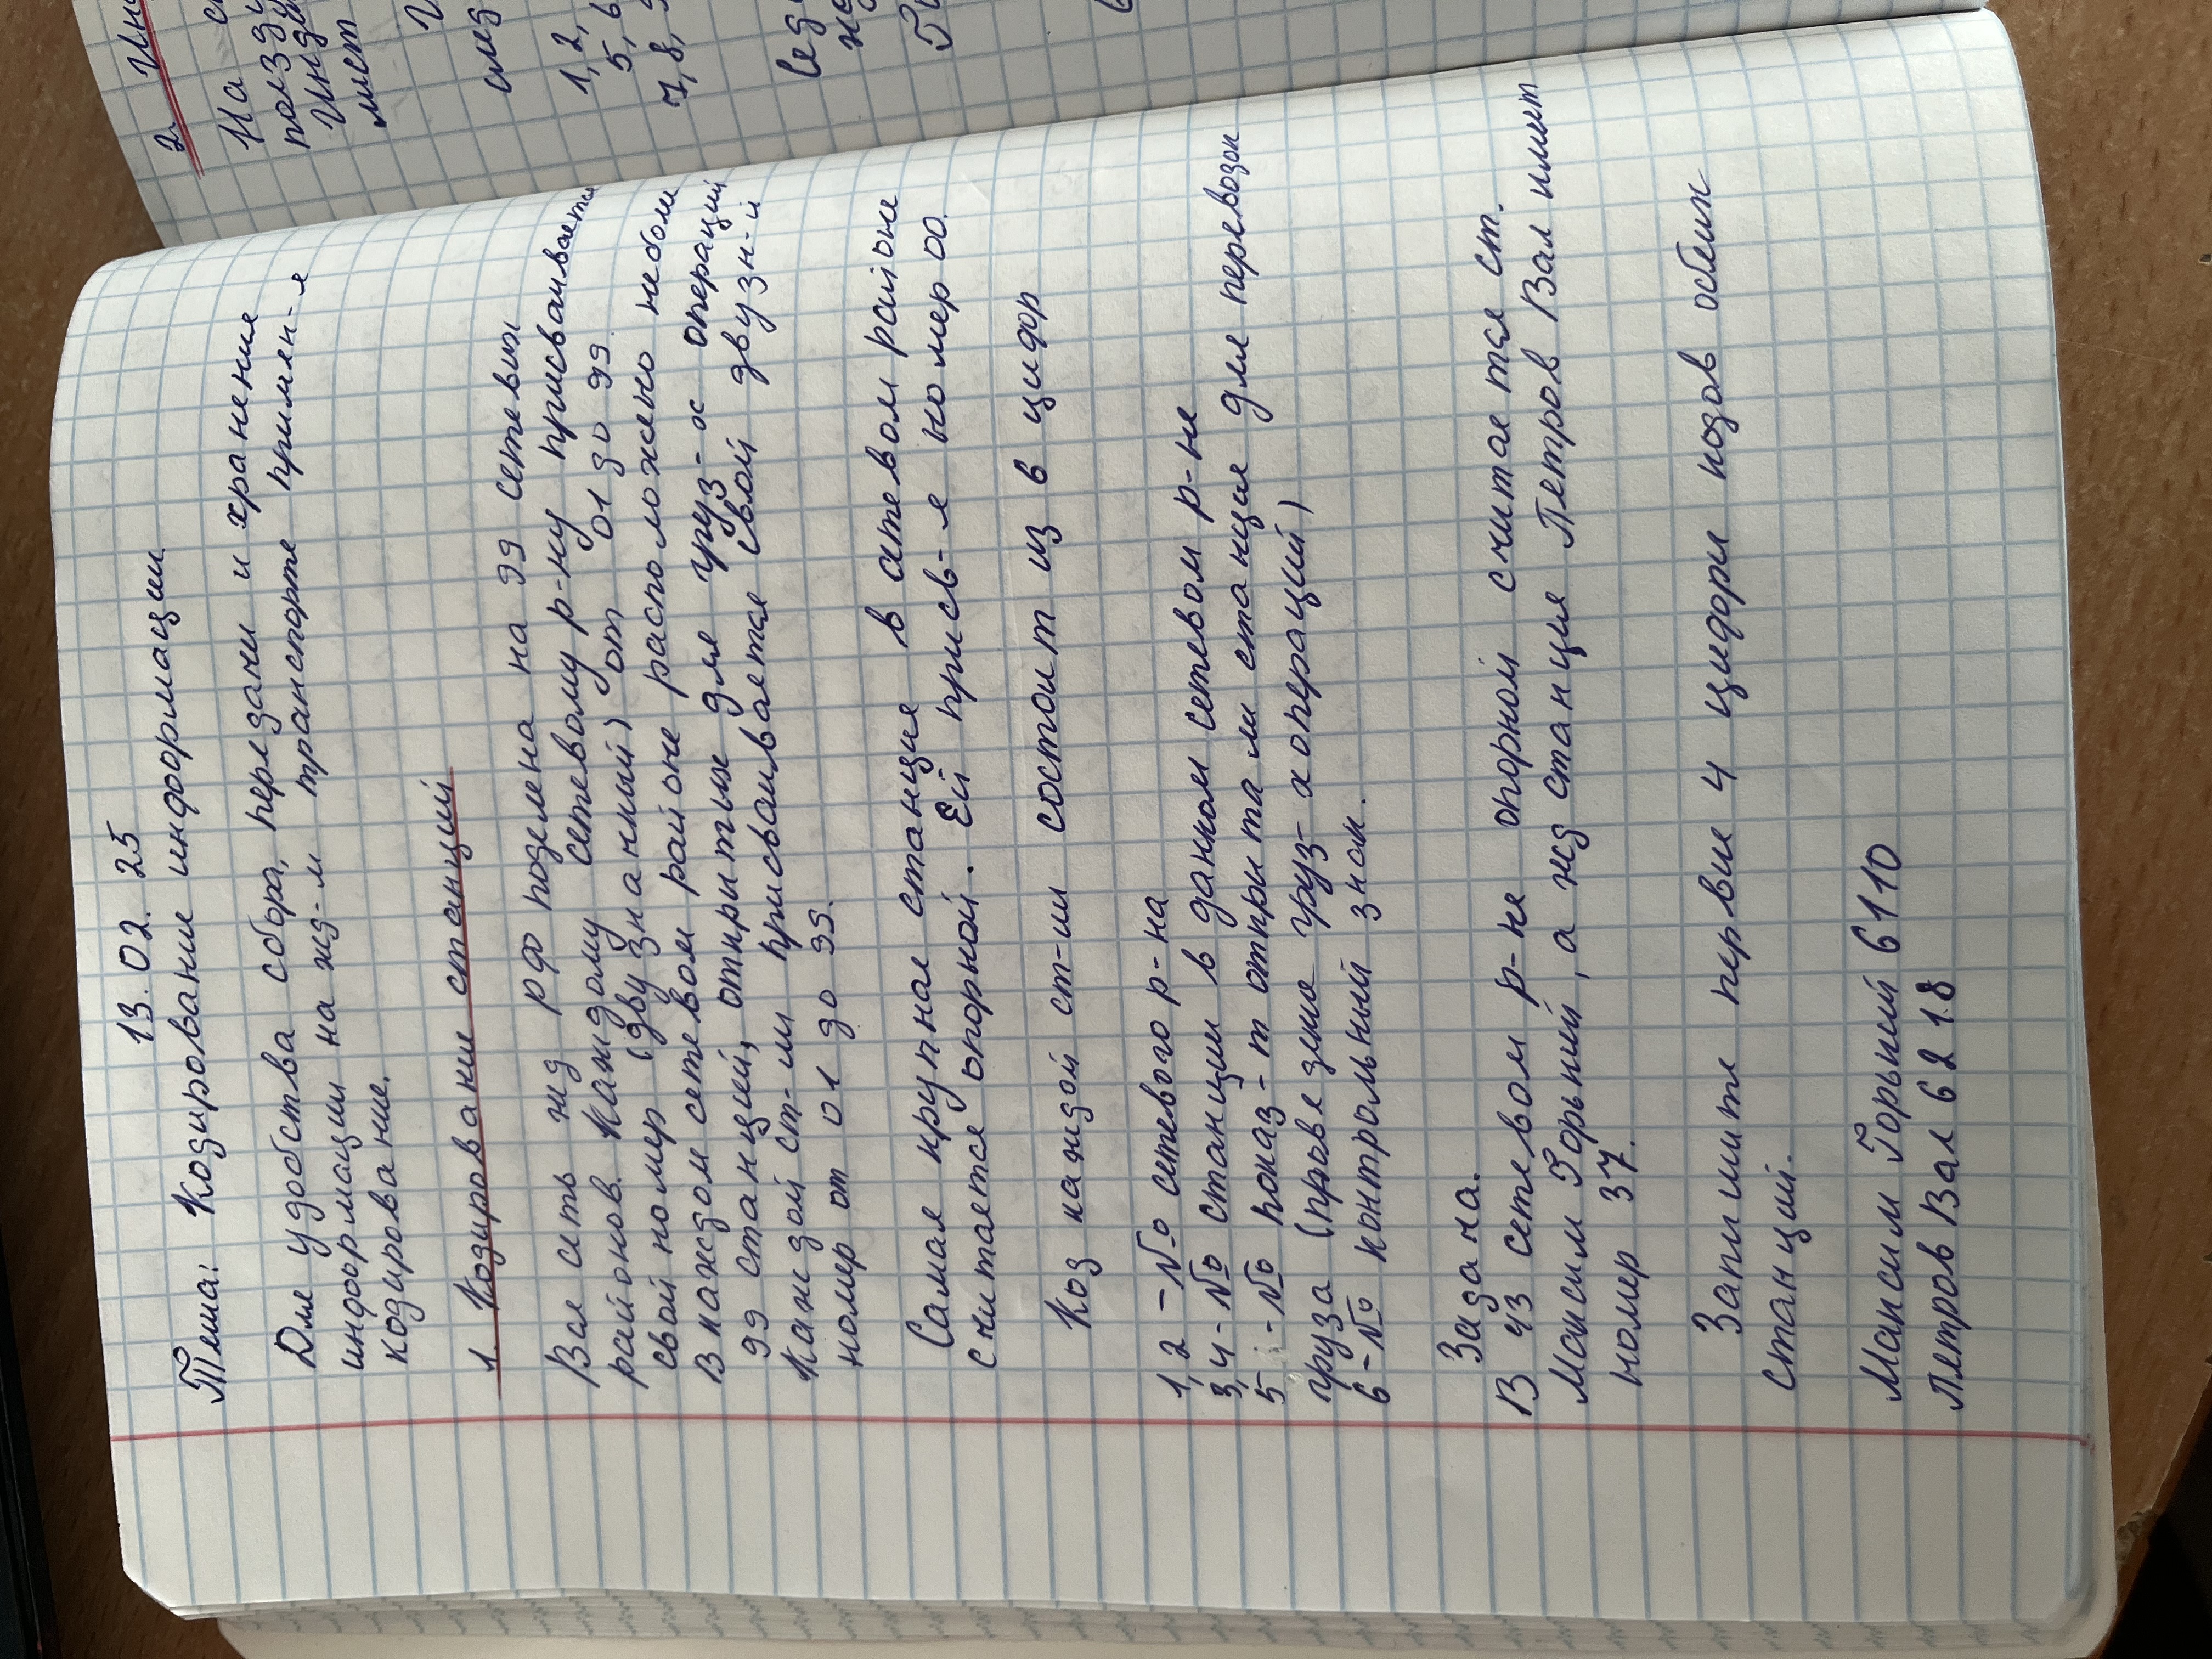 13.02.25
Тема: Кодирование информации
Для удобства сбора, передачи и хранения
информации на жд-м транспорте примен-я
кодирование.
1. Кодирование станций
Вся сеть жд РФ поделена на 99 сетевых
районов. Каждому сетевому р-ну присваивается
свой номер (двузначный) от 01 до 99.
В каждом сетевом районе расположено не более
99 станций, открытых для груз-х операций
Каждой ст-ии присваивается свой двузн-й
номер от 01 до 99.
Самая крупная станция в сетевом районе
считается опорной. Ей присв-я номер 00.
Код каждой ст-ии состоит из 6 цифр
1,2 - № сетевого р-на
3,4 - № станции в данном сетевом р-не
5 - № показ-т открыта ли станция для перевозок
груза (проведение груз-х операций)
6 - № контрольный знак.
Задача.
В 43 сетевом р-не опорной считается ст.
Максим Горький, а жд станция Петров Вал имеет
номер 37.
Запишите первые 4 цифры кодов обеих
станций.
Максим Горький 6110
Петров Вал 6218
2. Ин
На с
поезд
Инде
мест
след
1,2,
5,6
7,8,